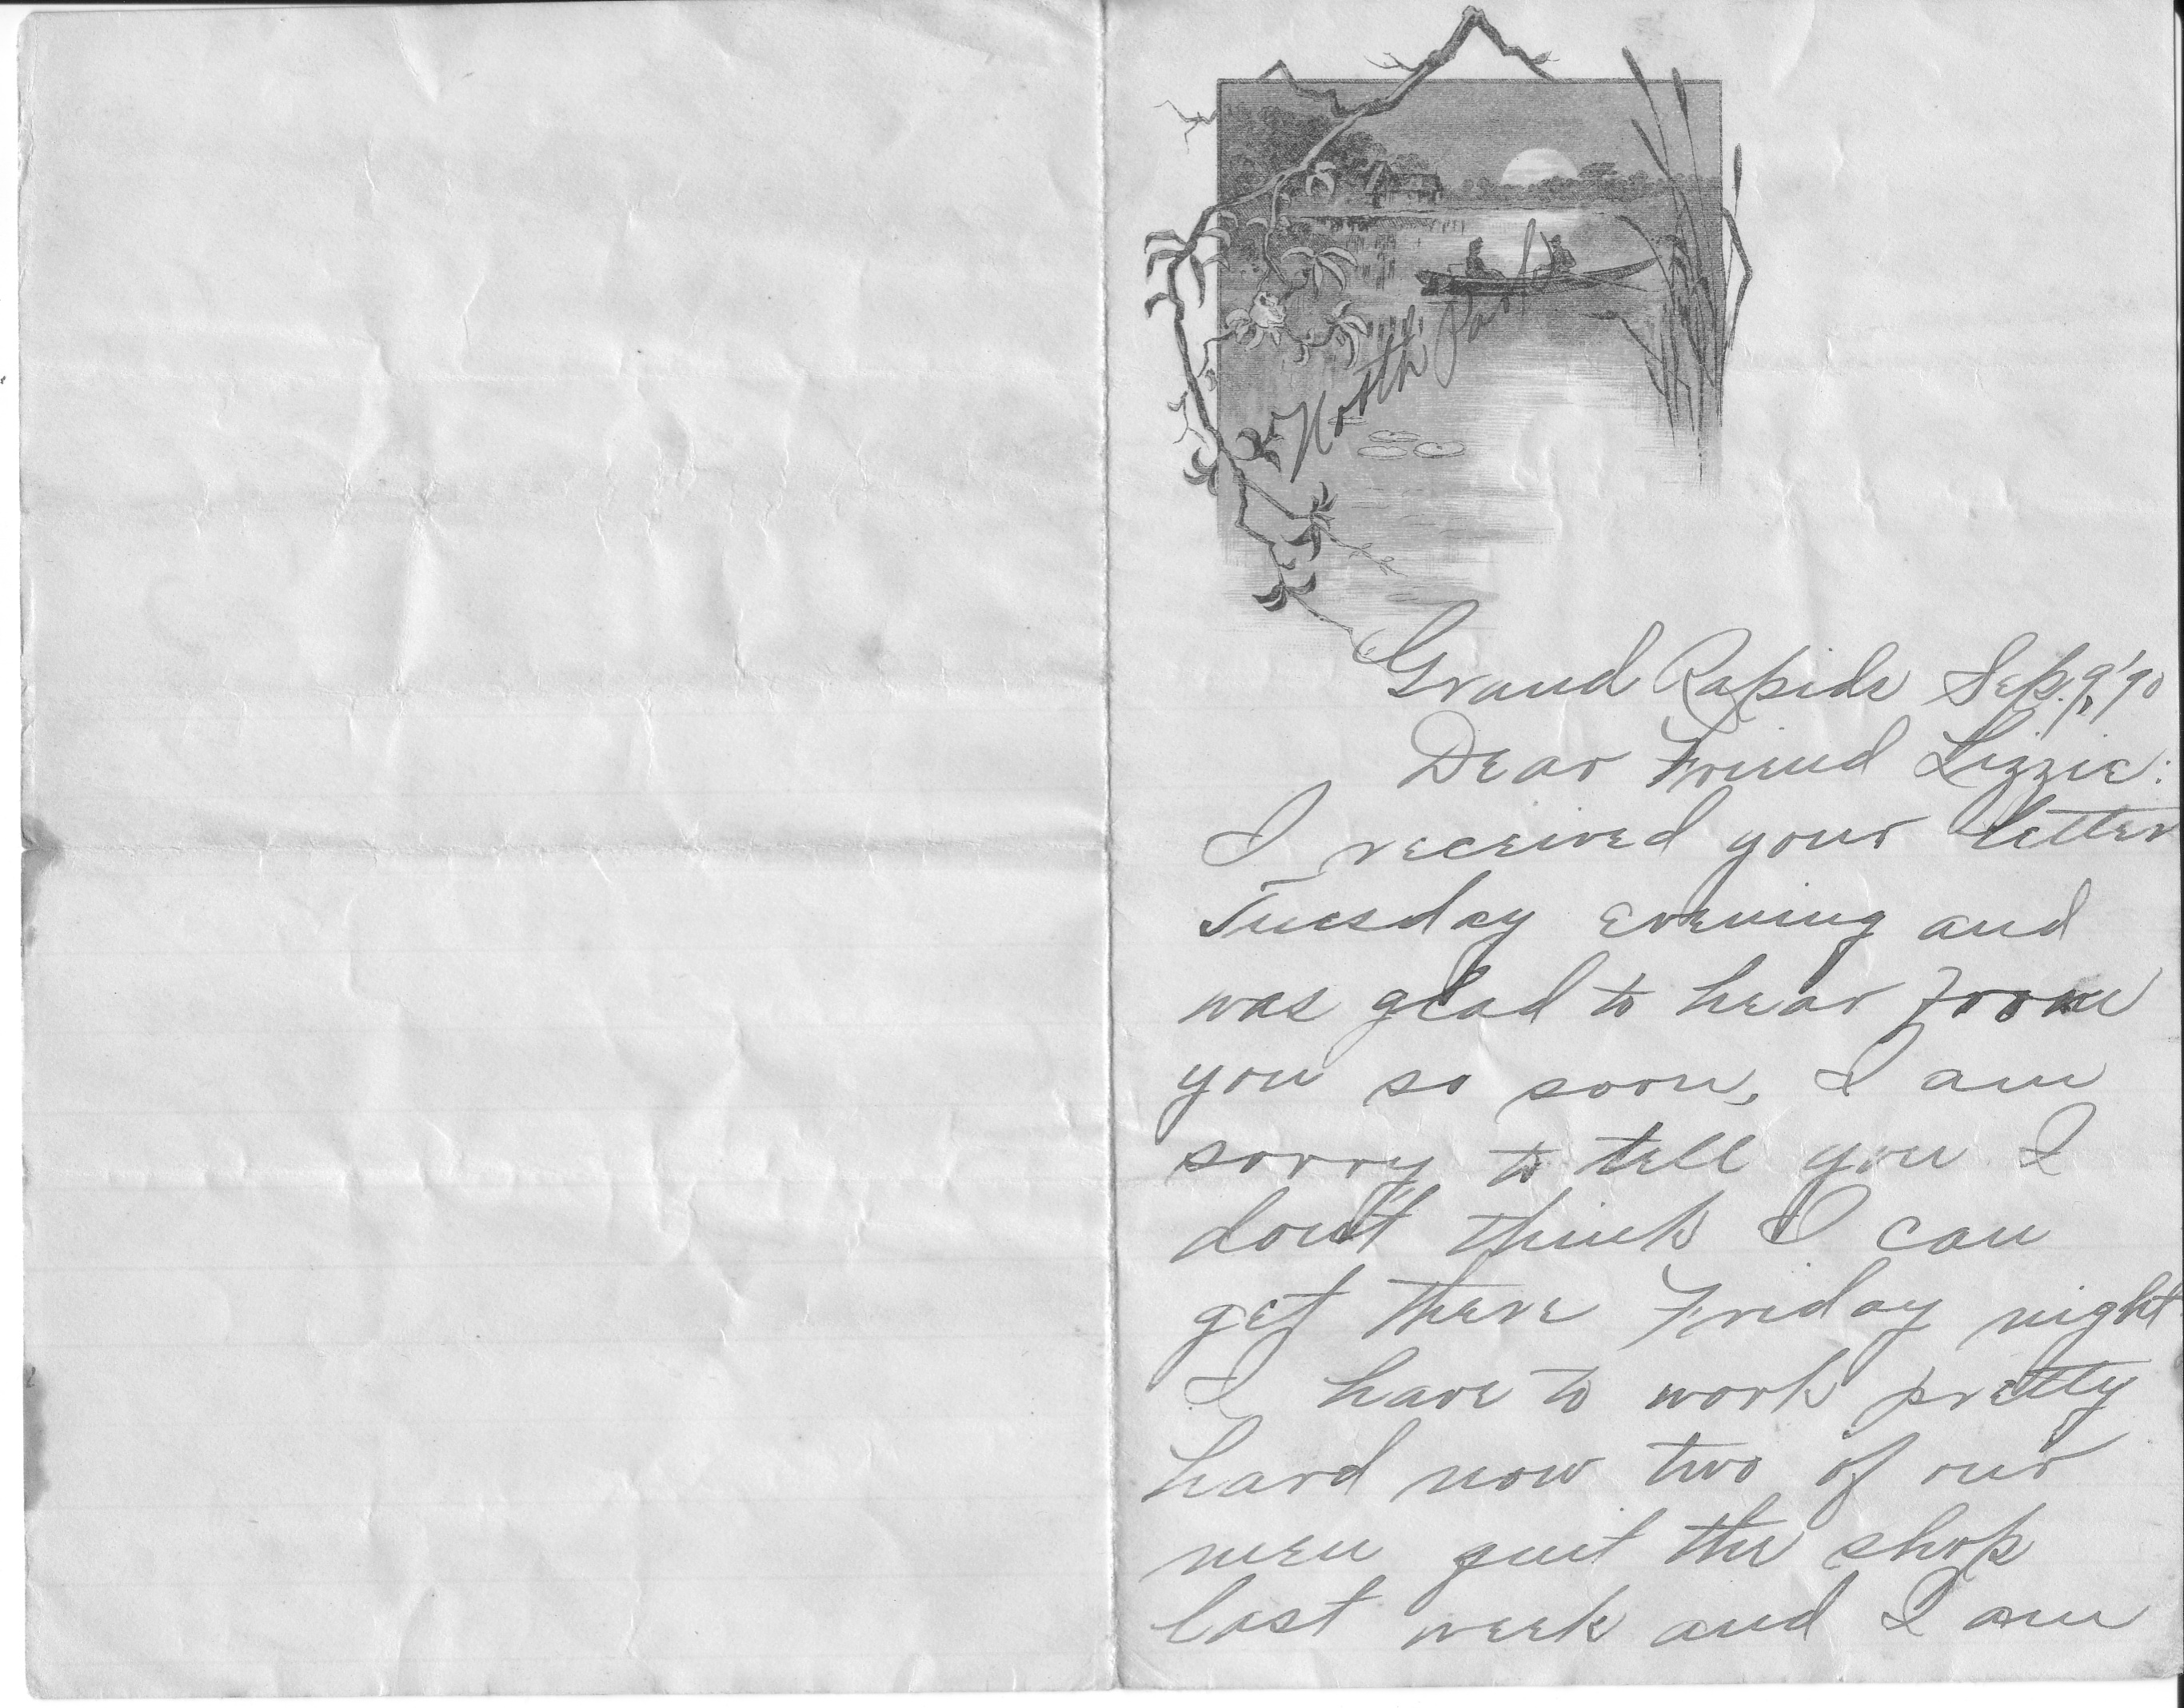 North Park
Grand Rapids Sep. 9, '90
Dear Friend Lizzie:
I received your letter
Tuesday evening and
was glad to hear from
you so soon, I am
sorry to tell you I
don't think I can
get there Friday night
I have to work pretty
hard now two of our
men quit the shop
last week and I am